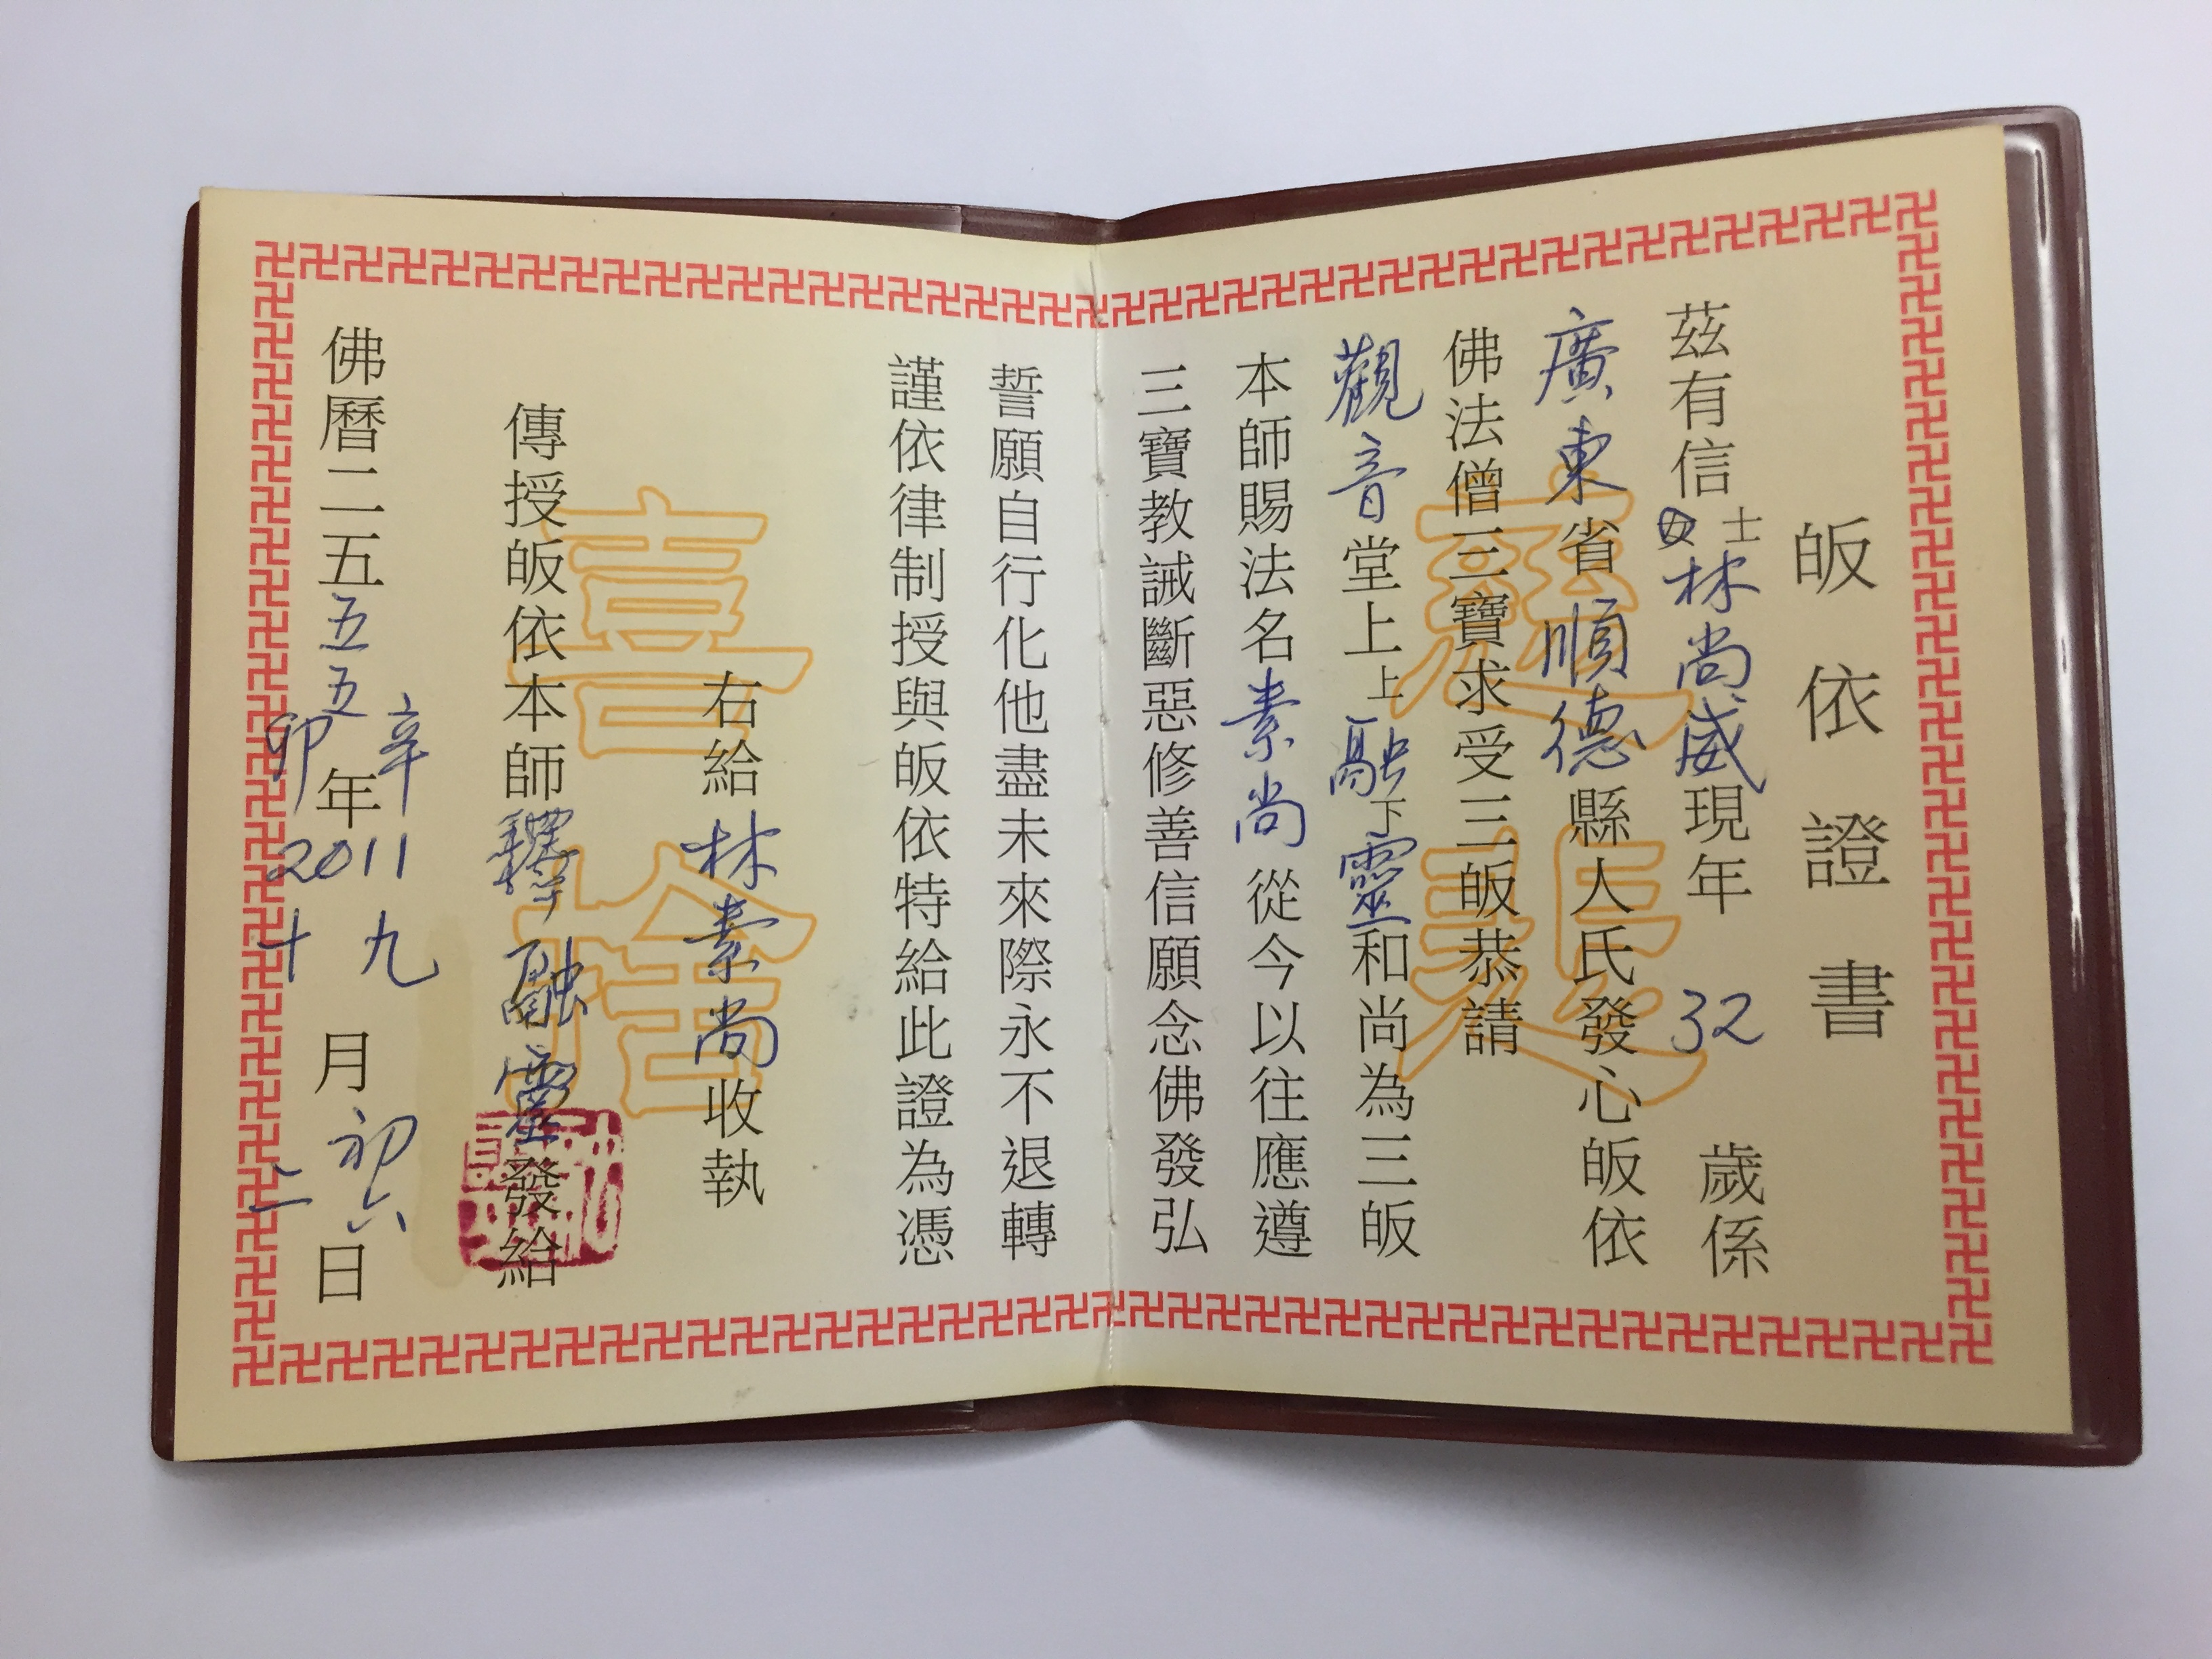 皈依證書
茲有信士女林尚威現年32歲係
廣東省順德縣人氏發心皈依
佛法僧三寶求受三皈恭請
觀音堂上上融下靈和尚為三皈
本師賜法名素尚從今以往應遵
三寶教誡斷惡修善信願念佛發弘
誓願自行化他盡未來際永不退轉
謹依律制授與皈依特給此證為憑
右給林素尚收執
傳授皈依本師釋融靈發給
佛曆二五五五年月初六日
辛卯
2011
九
十
二
慈悲
喜捨